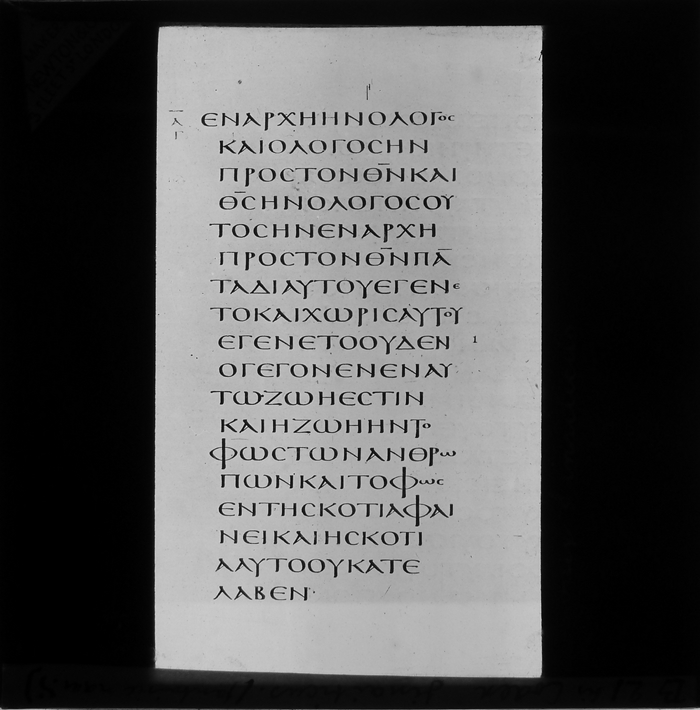 Α̅
Γ
ΕΝΑΡΧΗΗΝΟΛΟΓΟϹ
ΚΑΙΟΛΟΓΟϹΗΝ
ΠΡΟϹΤΟΝΘ̅Ν̅ΚΑΙ
Θ̅Ϲ̅ΗΝΟΛΟΓΟϹΟΥ
ΤΟϹΗΝΕΝΑΡΧΗ
ΠΡΟϹΤΟΝΘ̅Ν̅ΠΑ̅
ΤΑΔΙΑΥΤΟΥΕΓΕΝΕ
ΤΟΚΑΙΧΩΡΙϹΑΥΤΟΥ
ΕΓΕΝΕΤΟΟΥΔΕΝ 1
ΟΓΕΓΟΝΕΝΕΝΑΥ
ΤΩ·ΖΩΗΕϹΤΙΝ
ΚΑΙΗΖΩΗΗΝΤΟ
ΦΩϹΤΩΝΑΝΘΡΩ
ΠΩΝΚΑΙΤΟΦΩϹ
ΕΝΤΗϹΚΟΤΙΑΦΑΙ
ΝΕΙΚΑΙΗϹΚΟΤΙ
ΑΑΥΤΟΟΥΚΑΤΕ
ΛΑΒΕΝ·